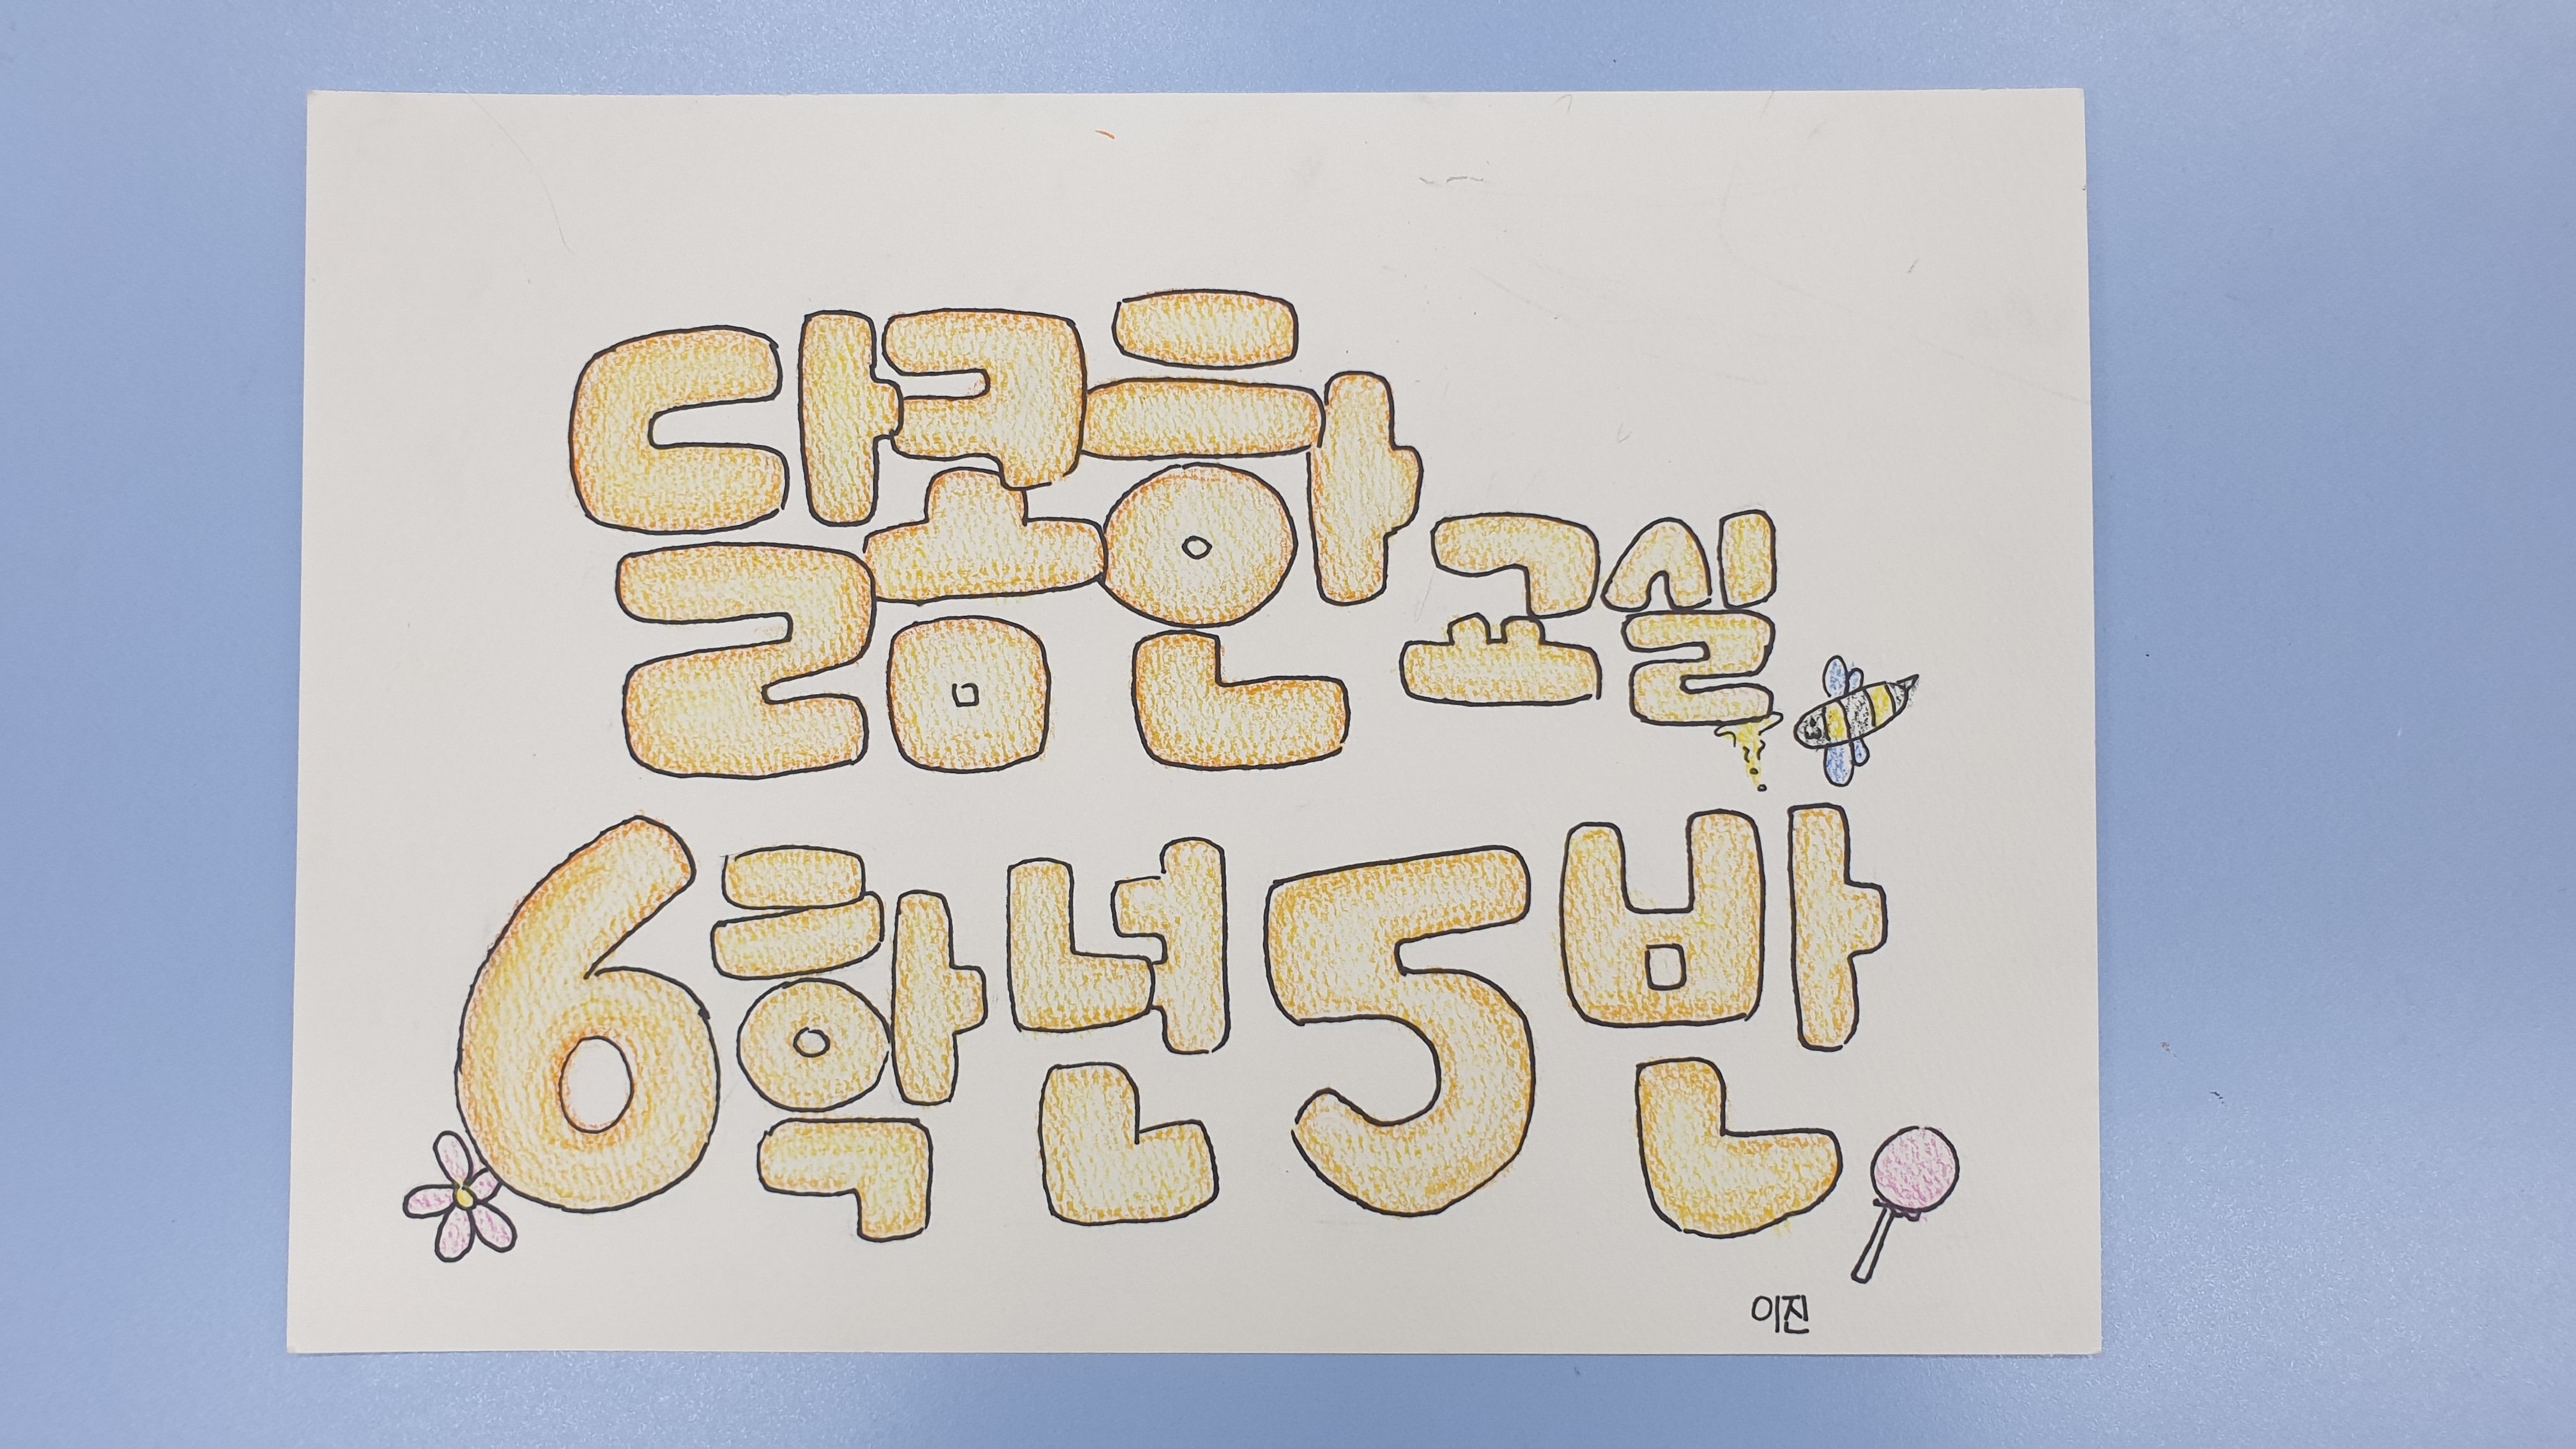 달콤한 교실
6학년 5반
이진